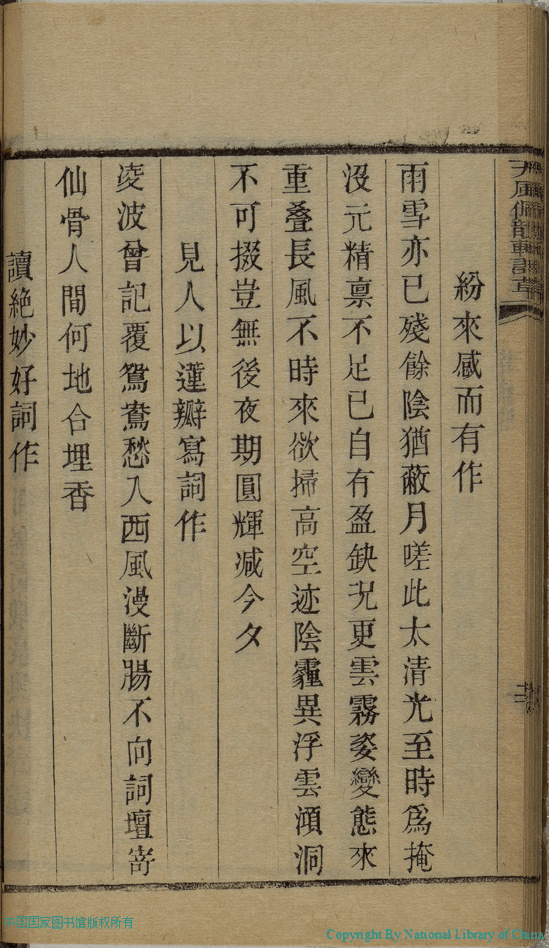 紛來感而有作
雨雪亦已殘餘陰猶蔽月嗟此太清光至時爲掩
沒元精禀不足已自有盈缺況更雲霧姿變態來
重叠長風不時來欲掃高空迹陰霾異浮雲澒洞
不可掇豈無後夜期圓輝减今夕
見人以蓮瓣寫詞作
凌波曾記覆鴛鴦愁入西風漫斷腸不向詞壇寄
仙骨人間何地合埋香
讀絕妙好詞作
中国国家图书馆版权所有
Copyright By National Library of China